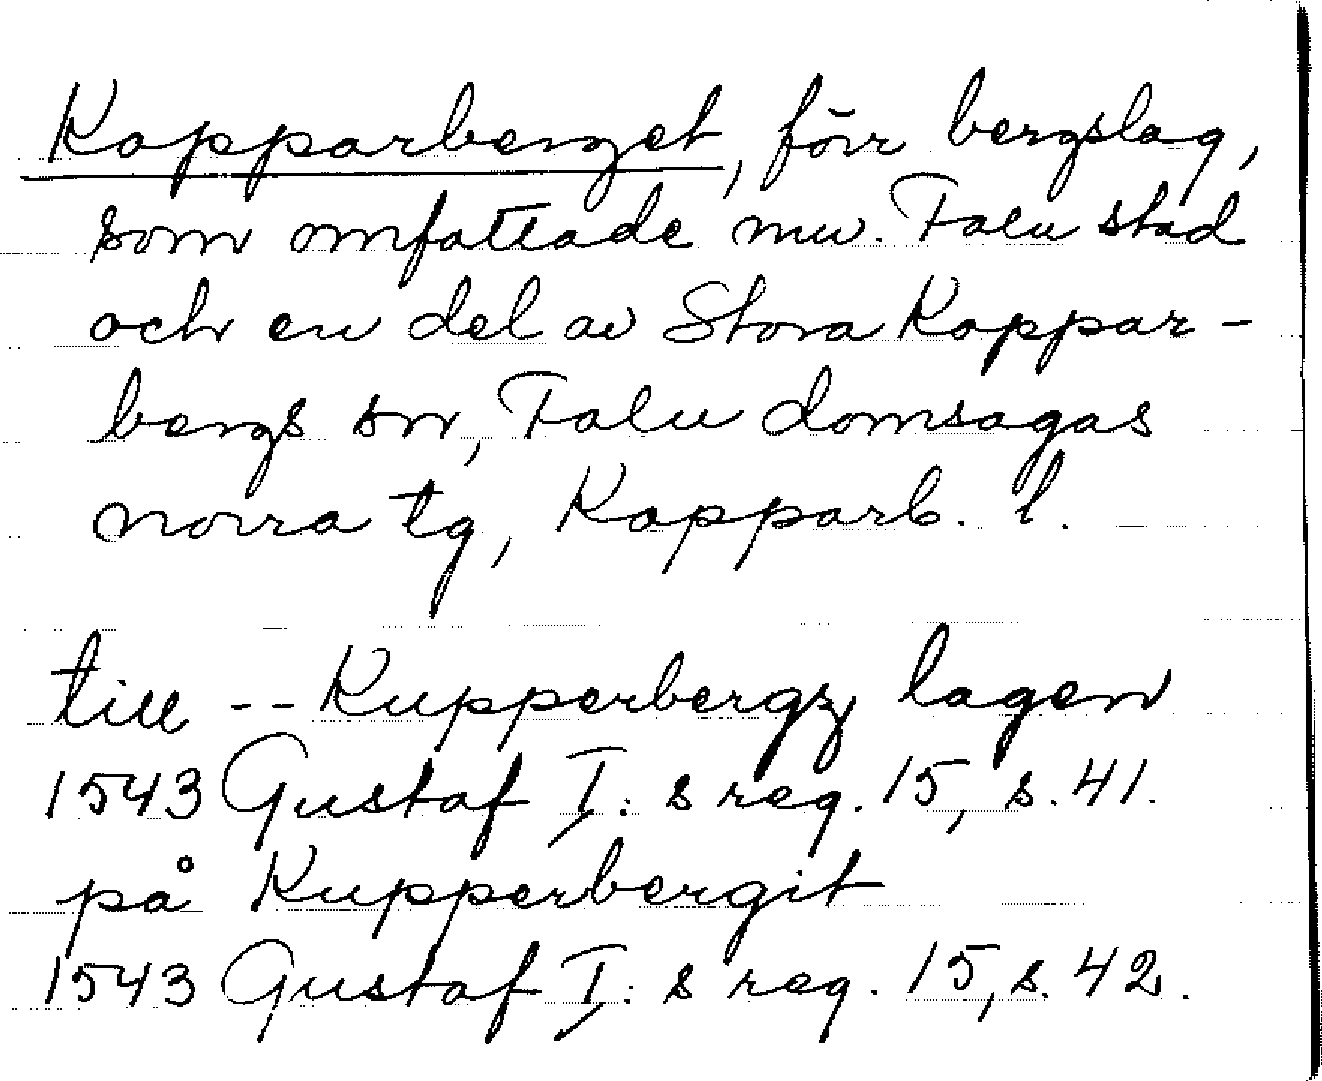 Kopparberget, förr bergslag,
som omfattade nuv. Falu stad
och en del av Stora Koppar-
bergs sn, Falu domsagas
norra tg, Kopparb. l.
till -- Kupperbergz lagen
1543 Gustaf I:s reg. 15, s. 41.
på Kupperbergit
1543 Gustaf I:s reg. 15, s. 42.